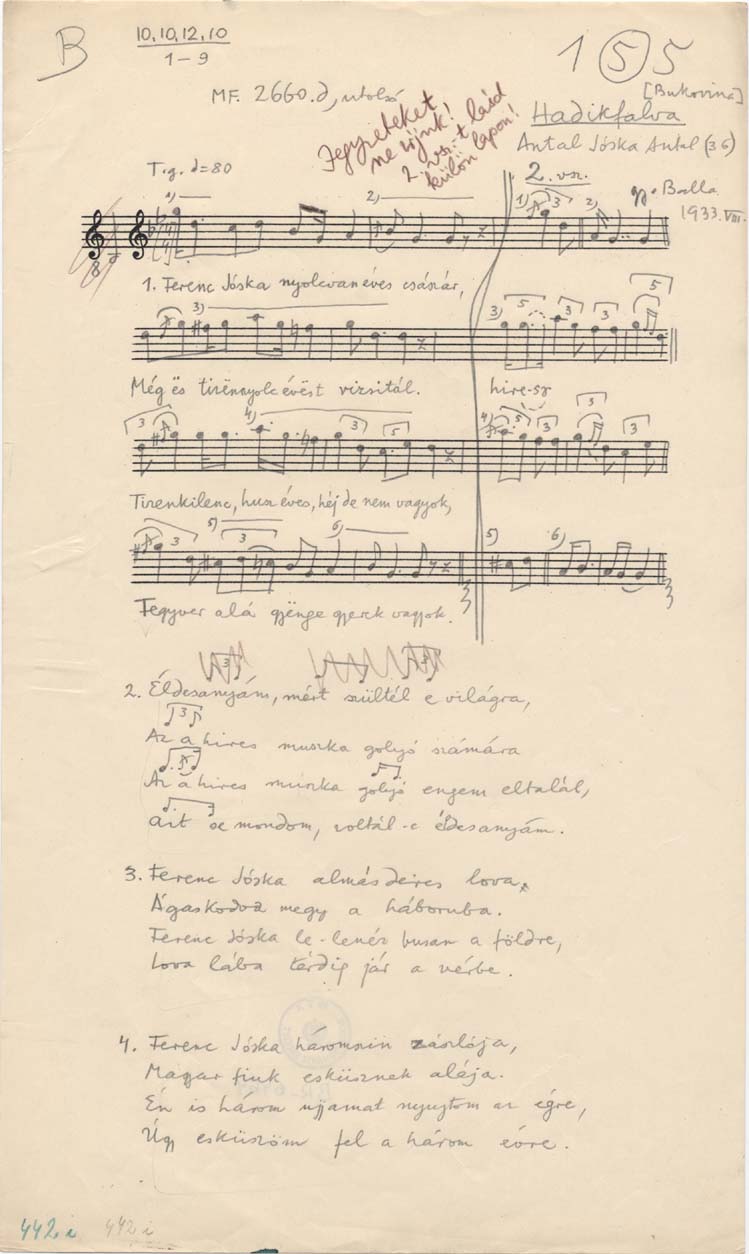 B
10, 10, 12, 10
1–9
155
MF. 2660.d, utolsó
[Bukovina]
Hadikfalva
Antal Jóska Antal (36)
Jegyzeteket
ne írjunk!
2. vsz.-t lásd
külön lapon!
T.g. ♩=80
2. vsz.
Balla
1933. VIII.
1) 2) 1) 3 2)
8
1. Ferenc Jóska nyolcvanéves császár,
3) 3) 5 3 3 5
Még ës tizënnyolc évëst vizsitál. hires-sz
3 4) 3 5 4) 5 3 3 3
Tizenkilenc, husz éves, héj de nem vagyok,
3 5) 3 6) 5) 6)
Fegyver alá gyënge gyerek vagyok.
3 3
2. Éldesanyám, mért szültél e világra,
3
Az a hires muszka golyó számára
Az a hires muszka golyó engem eltalál,
Azt se mondom, voltál-e éldesanyám.
3. Ferenc Jóska almásdeires lova,
Ágaskodva megy a háboruba.
Ferenc Jóska le-lenéz busan a földre,
Lova lába térdig jár a vérbe.
4. Ferenc Jóska háromszin zászlója,
Magyar fiuk esküsznek alája.
Én is három ujjamat nyujtom az égre,
Úgy esküszöm fel a három évre.
442 i 442 i